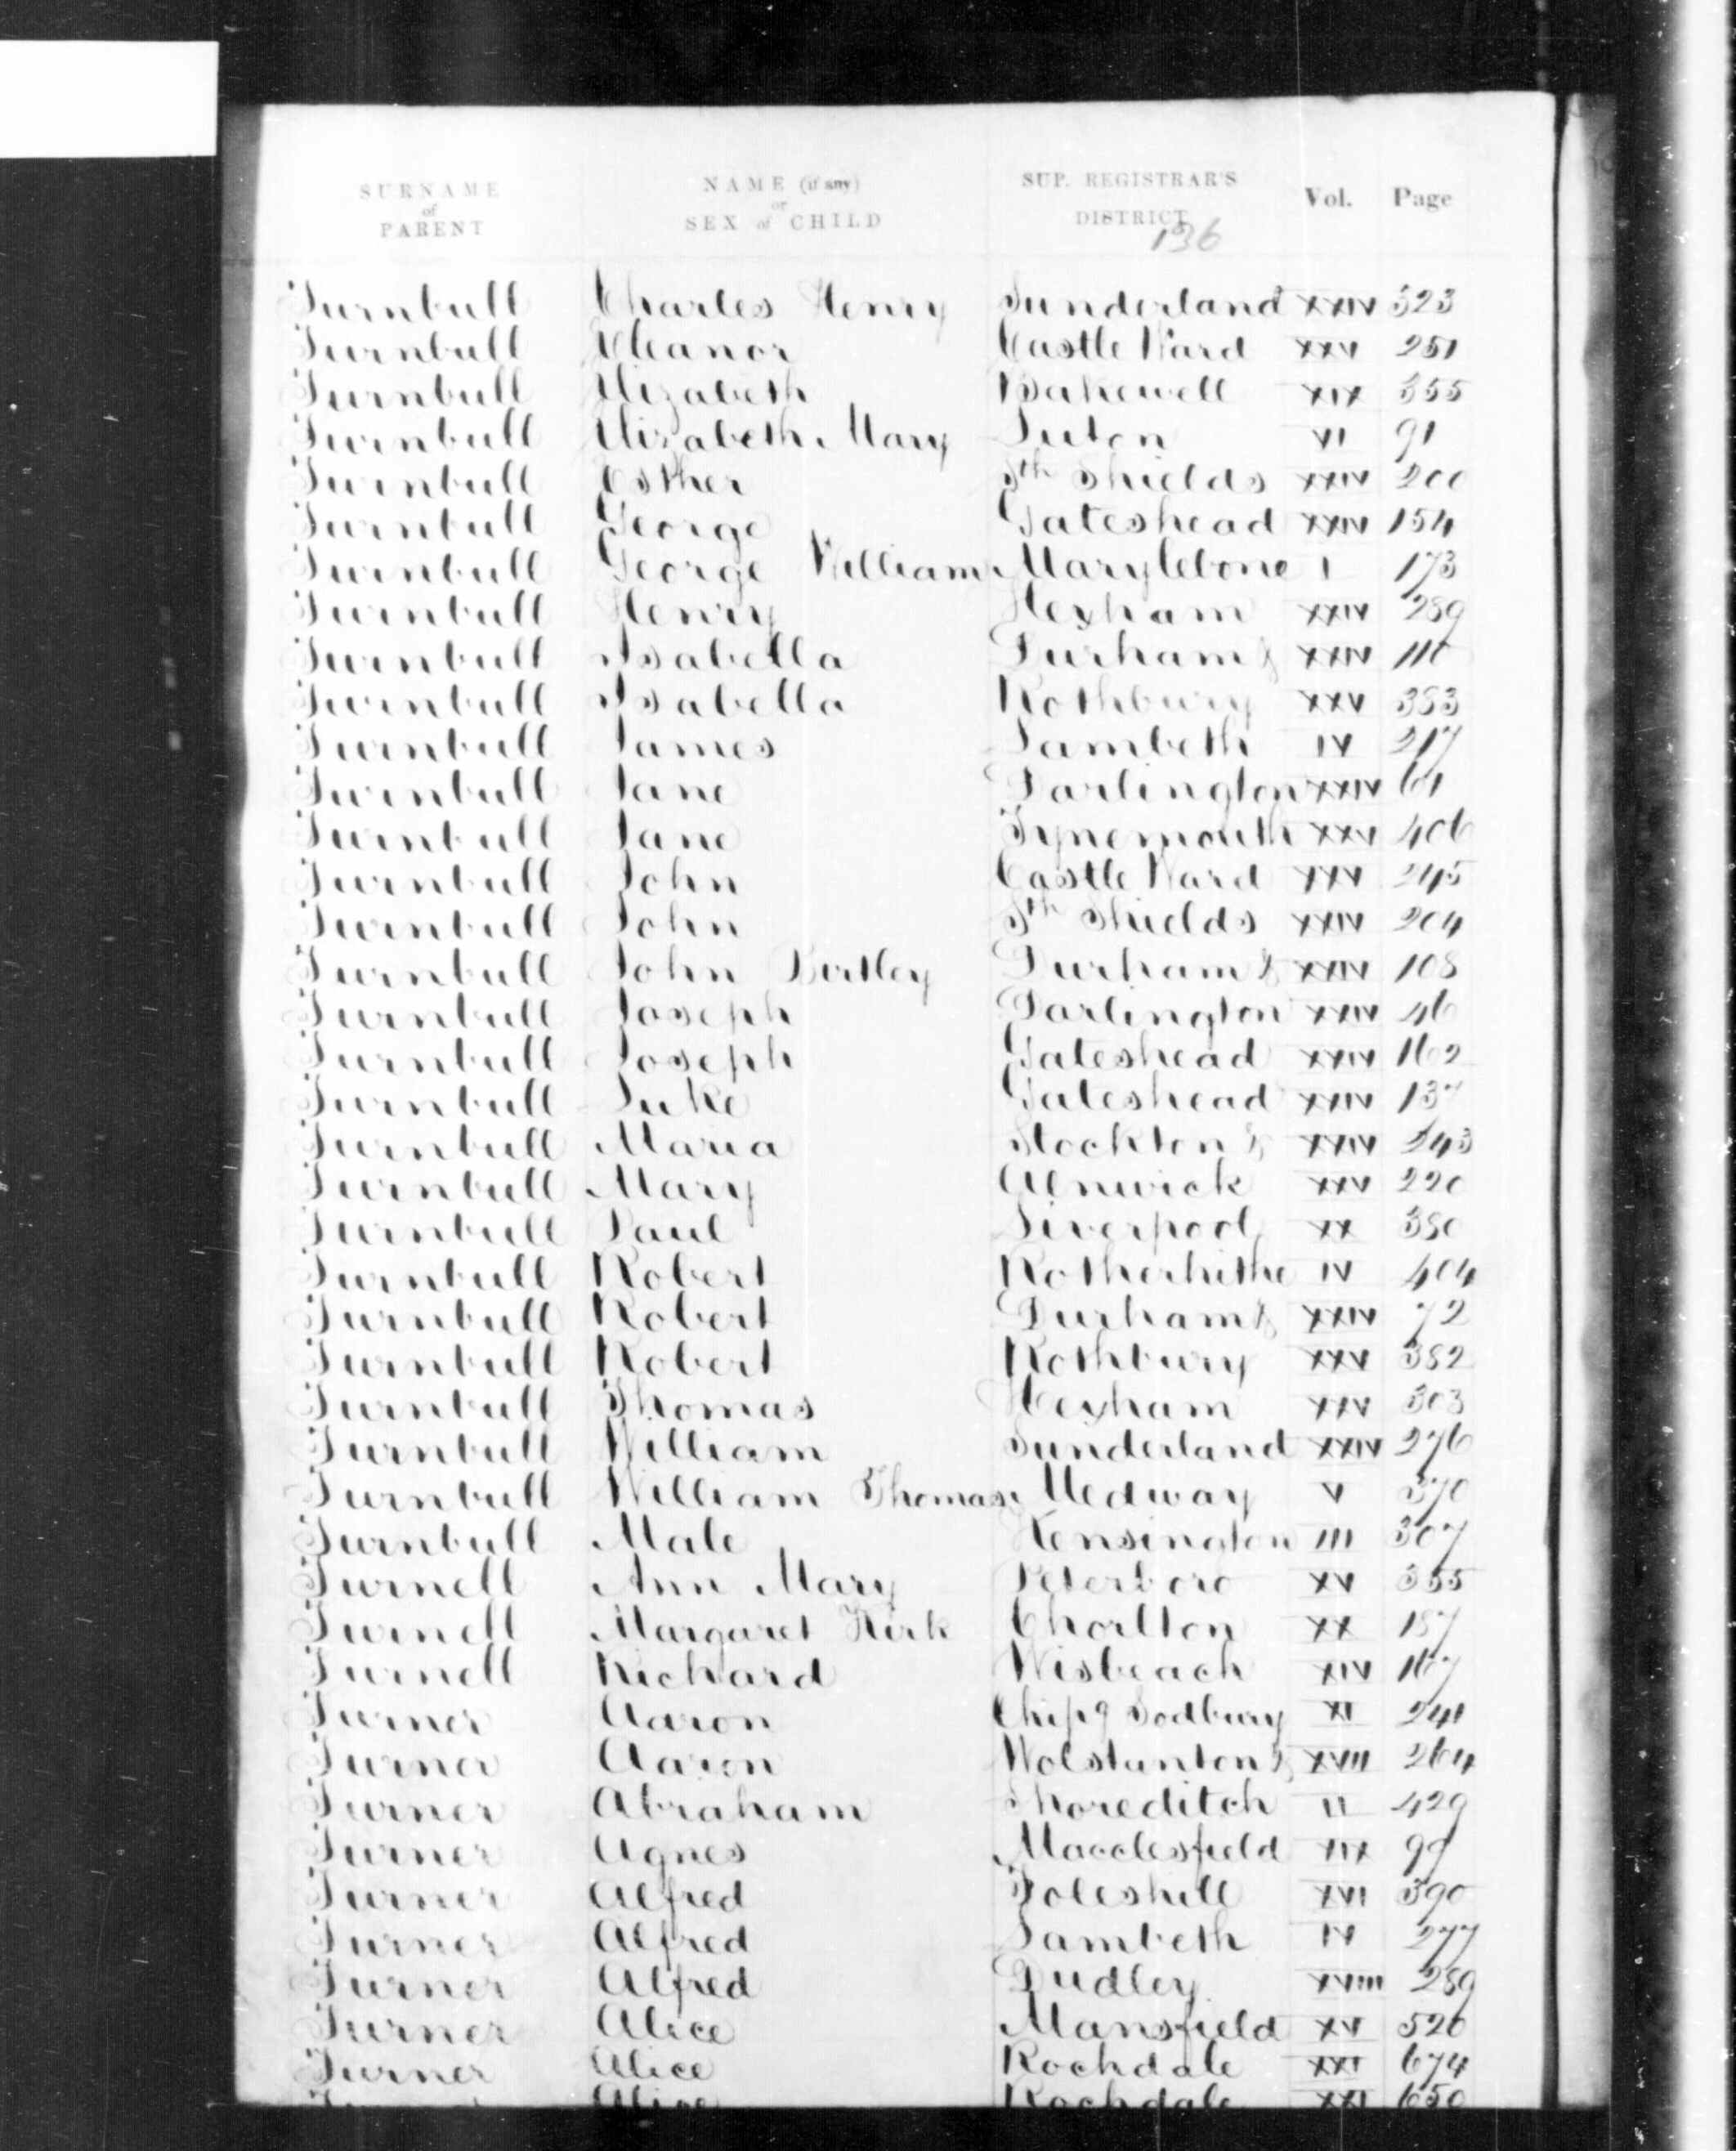 SURNAME of PARENT NAME (if any) or SEX of CHILD SUP. REGISTRAR'S DISTRICT Vol. Page
136
Turnbull Charles Henry Sunderland XXIV 323
Turnbull Eleanor Castle Ward XXV 251
Turnbull Elizabeth Bakewell XIX 355
Turnbull Elizabeth Mary Luton VI 91
Turnbull Esther Sth Shields XXIV 200
Turnbull George Gateshead XXIV 154
Turnbull George William Marylebone I 173
Turnbull Henry Hexham XXIV 289
Turnbull Isabella Durham & XXIV 116
Turnbull Isabella Rothbury XXV 383
Turnbull James Lambeth IV 217
Turnbull Jane Darlington XXIV 61
Turnbull Jane Tynemouth XXV 406
Turnbull John Castle Ward XXV 245
Turnbull John Sth Shields XXIV 204
Turnbull John Birtley Durham & XXIV 108
Turnbull Joseph Darlington XXIV 46
Turnbull Joseph Gateshead XXIV 162
Turnbull Luke Gateshead XXIV 137
Turnbull Maria Stockton & XXIV 243
Turnbull Mary Alnwick XXV 220
Turnbull Paul Liverpool XX 380
Turnbull Robert Rotherhithe IV 404
Turnbull Robert Durham & XXIV 72
Turnbull Robert Rothbury XXV 382
Turnbull Thomas Hexham XXV 303
Turnbull William Sunderland XXIV 276
Turnbull William Thomas Medway V 370
Turnbull Male Kensington III 307
Turnell Ann Mary Peterboro XV 355
Turnell Margaret Kirk Chorlton XX 187
Turnell Richard Wisbeach XIV 167
Turner Aaron Chipg Sodbury XI 241
Turner Aaron Wolstanton & XVII 264
Turner Abraham Shoreditch II 429
Turner Agnes Macclesfield XIX 99
Turner Alfred Foleshill XVI 390
Turner Alfred Lambeth IV 277
Turner Alfred Dudley XVIII 289
Turner Alice Mansfield XV 526
Turner Alice Rochdale XXI 674
Alice Rochdale XXI 650